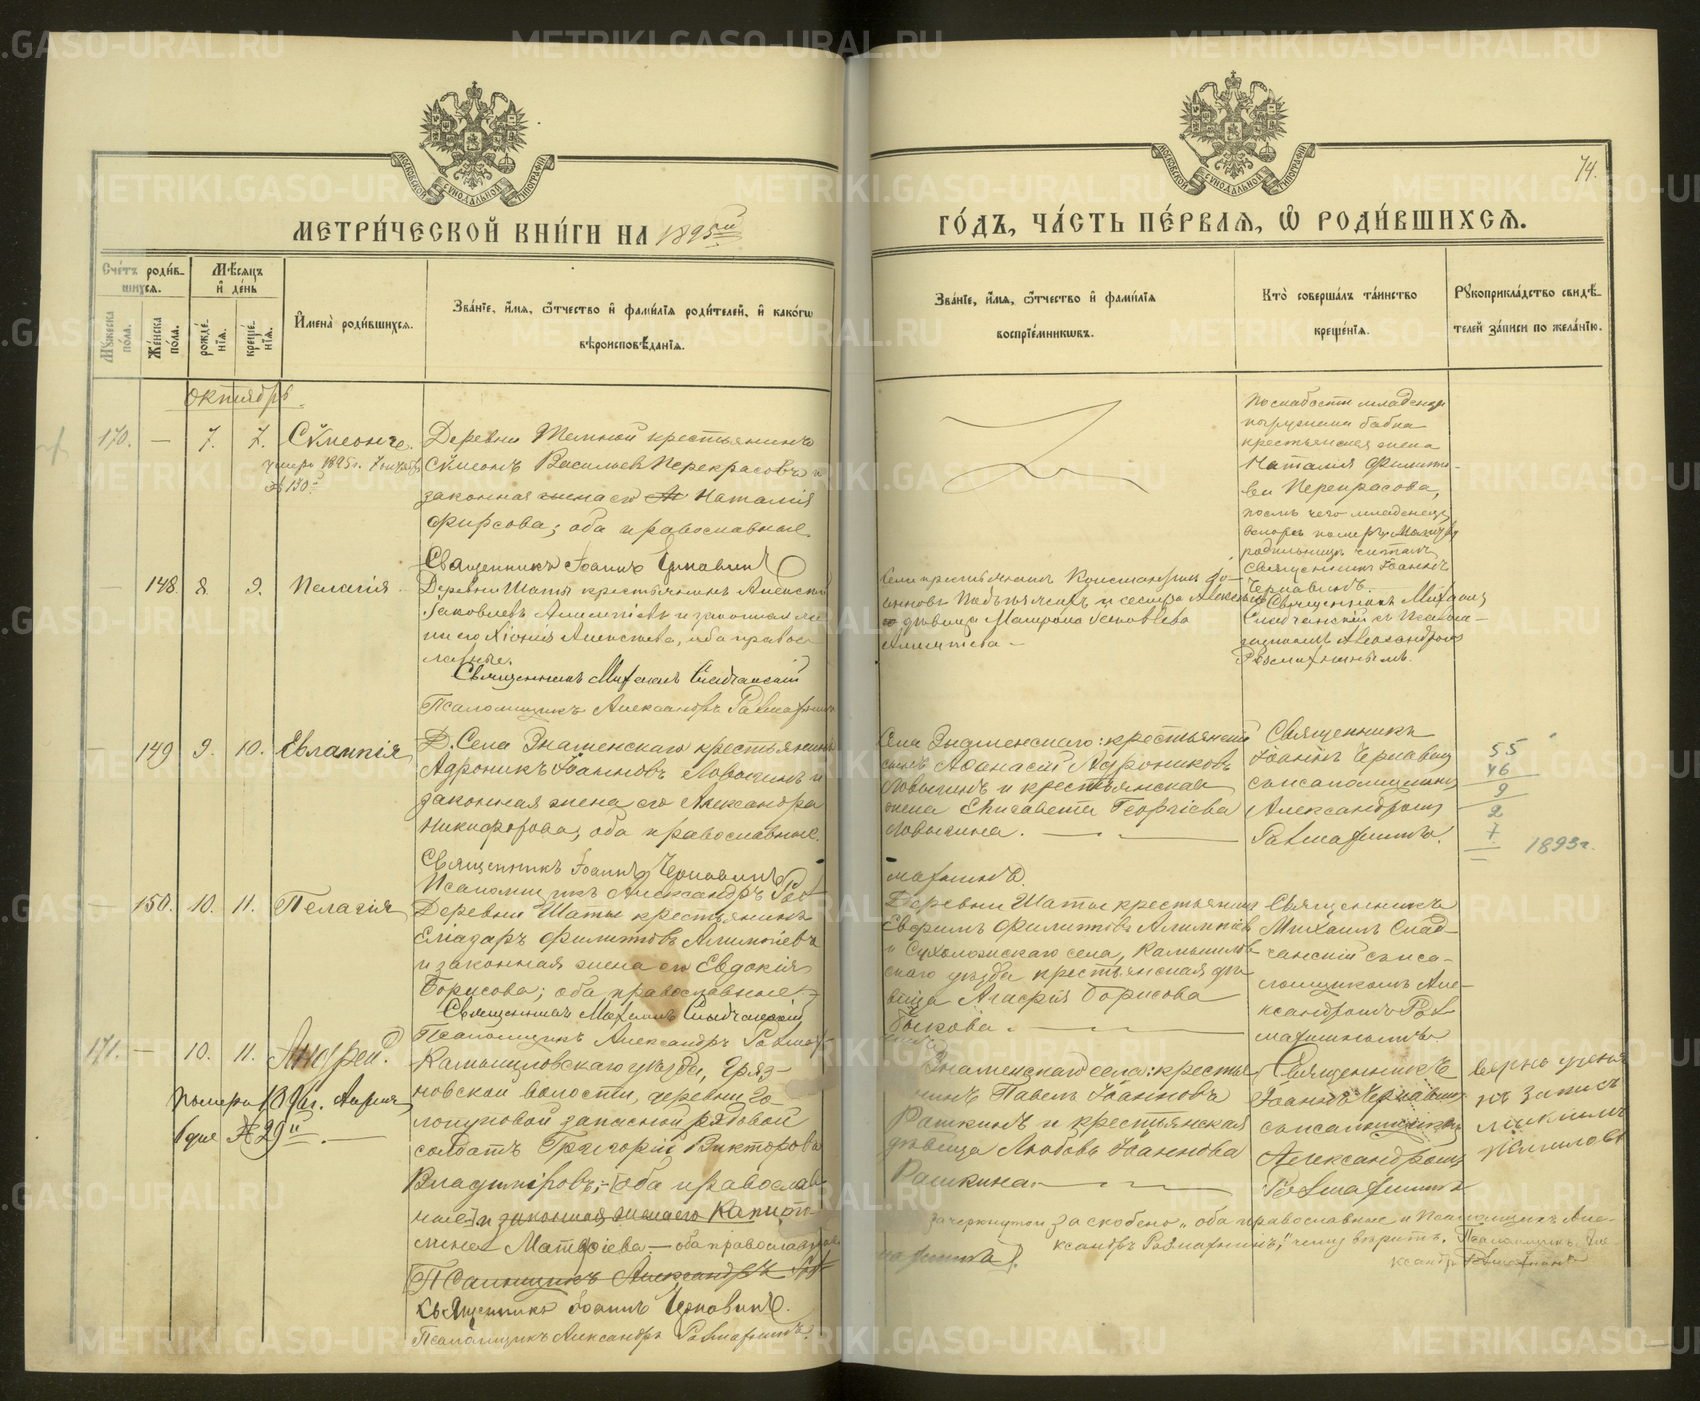 МЕТРИ́ЧЕСКОЙ КНИ́ГИ НА 1895й
ГО́ДЪ, ЧА́СТЬ ПЕ́РВАЯ, Ѽ РОДИ́ВШИХСЯ.
74.
МОСКОВСКОЙ СУНОДАЛЬНОЙ ТИПОГРАФІИ
МОСКОВСКОЙ СУНОДАЛЬНОЙ ТИПОГРАФІИ
Сче́тъ роди́вшихся.
Мѣ́сяцъ и҆ де́нь
Му́жеска по́ла.
Же́нска по́ла.
рожде́нїя.
креще́нїя.
И҆мена̀ роди́вшихся.
Зва́нїе, и҆́мя, ѻ҆́тчество и҆ фамѝлїя роди́телей, и҆ како́гѡ
вѣроисповѣ́данїя.
Зва́нїе, и҆́мя, ѻ҆́тчество и҆ фамѝлїя
воспрїе́мникѡвъ.
Кто̀ соверша́лъ та́инство
креще́нїя.
Рꙋкоприкла́дство свидѣ́телей за́писи по жела́нїю.
Октябрь
170. — 7. 7. Сѵмеонъ.
умеръ 1895 г. 7 октября
№ 130й
Деревни Темной крестьянинъ
Сѵмеонъ Васильевъ Перекрасовъ и
законная жена его Наталія
Фирсова; оба православные
Священникъ Іоаннъ Чернавинъ
По слабости младенца
погружала бабка
крестьянская жена
Наталія Филиппова Перекрасова,
послѣ чего младенецъ
вскорѣ померъ. Молитву
родильницѣ читалъ
Священникъ Іоаннъ
Чернавинъ.
— 148 8. 9. Пелагія.
Деревни Шаты крестьянинъ Алексѣй
Яковлевъ Алимпіевъ и законная жена его Хіонія Алексѣева, оба православные.
Священникъ Михаилъ Сладчанскій
Псаломщикъ Александръ Размахнинъ
Села крестьянинъ Константинъ
и сестра Алексѣя
дѣвица Матрона Яковлева
Алимпіева
Священникъ Михаилъ
Сладчанскій съ псаломщикомъ Александромъ
Размахнинымъ.
— 149 9. 10. Евлампія
Села Знаменскаго крестьянинъ
Адроникъ Іоанновъ Ловыгинъ и
законная жена его Александра
Никифорова, оба православные.
Священникъ Іоаннъ Чернавинъ
Псаломщикъ Александръ Размахнинъ.
Села Знаменскаго: крестьянскій
сынъ Аѳанасій Адрониковъ
Ловыгинъ и крестьянская
жена Елисавета Георгіева
Ловыгина.
Священникъ
Іоаннъ Чернавинъ
съ псаломщикомъ
Александромъ
55
46
9
2
7
1893 г.
— 150. 10. 11. Пелагія
Деревни Шаты крестьянинъ
Еліазаръ Филипповъ Алимпіевъ
и законная жена его Евдокія
Борисова; оба православные
Священникъ Михаилъ Сладчанскій
Псаломщикъ Александръ Размах-
Деревни Шаты крестьянинъ
Ефримъ Филипповъ Алимпіевъ
и Сухоложскаго села, Камышловскаго уѣзда крестьянская дѣвица Агафія Борисова
Быкова.
Священникъ
Михаилъ Сладчанскій съ псаломщикомъ Александромъ Размахнинымъ
171. — 10. 11. Андрей.
Померъ 1896 г. Апрѣля
1 дня № 29й
Камышловскаго уѣзда, Грязновской волости, деревни
запасной рядовой
солдатъ Григорій Викторовъ
Владиміровъ; [оба православные] и законная жена его Капитолина Матвѣева — оба православные
Псаломщикъ Александръ
Священникъ Іоаннъ Чернавинъ.
Псаломщикъ Александръ Размахнинъ.
Знаменскаго села: крестьянинъ Павелъ Іоанновъ
Рашкинъ и крестьянская
дѣвица Любовь Іоаннова
Рашкина.
Священникъ
Іоаннъ Чернавинъ
съ псаломщикомъ
Александромъ
Размахнинымъ
зачеркнутой за скобою „оба православные и Псаломщикъ Александръ Размахнинъ," чему вѣрить. Псаломщикъ Александръ Размахнинъ